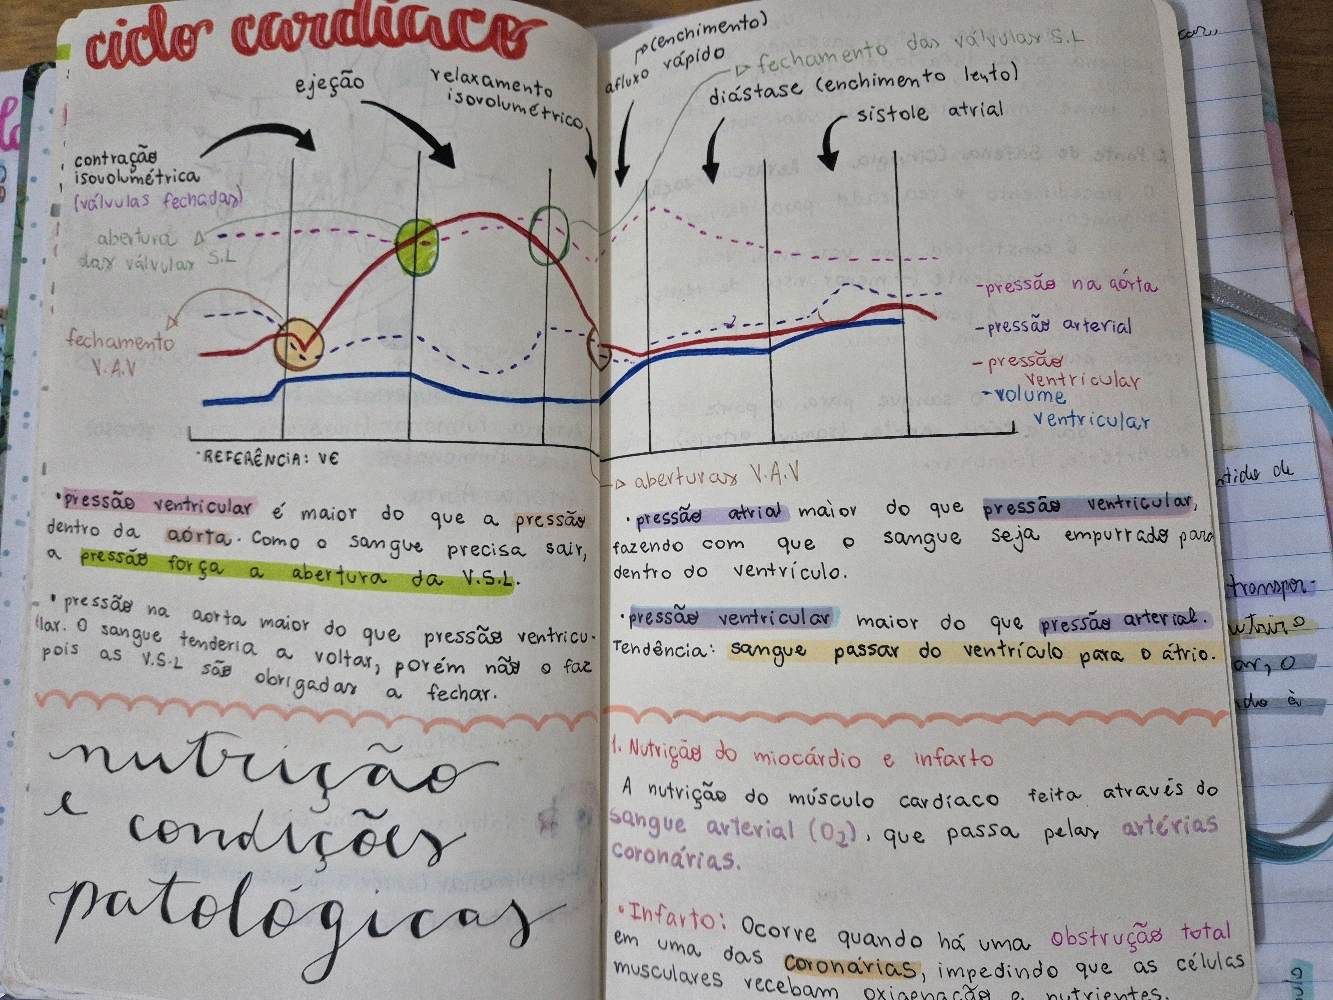 ciclo cardíaco
ejeção
relaxamento
isovolumétrico
(enchimento)
afluxo rápido
fechamento das válvulas S.L
diástase (enchimento lento)
sístole atrial
contração
isovolumétrica
(válvulas fechadas)
abertura
das válvulas S.L
fechamento
V.A.V
-pressão na aórta
-pressão arterial
-pressão
ventricular
-volume
ventricular
*REFERÊNCIA: VE
aberturas V.A.V
•pressão ventricular é maior do que a pressão
dentro da aórta. Como o sangue precisa sair,
a pressão força a abertura da V.S.L.
•pressão na aorta maior do que pressão ventricu-
lar. O sangue tenderia a voltar, porém não o faz
pois as V.S.L são obrigadas a fechar.
•pressão atrial maior do que pressão ventricular,
fazendo com que o sangue seja empurrado para
dentro do ventrículo.
•pressão ventricular maior do que pressão arterial.
Tendência: sangue passar do ventrículo para o átrio.
nutrição
e condições
patológicas
1. Nutrição do miocárdio e infarto
A nutrição do músculo cardíaco feita através do
sangue arterial (O2), que passa pelas artérias
coronárias.
•Infarto: Ocorre quando há uma obstrução total
em uma das coronárias, impedindo que as células
musculares recebam oxigenação e nutrientes.
ntido de
transpor-
utrir o
ar, o
ndo à